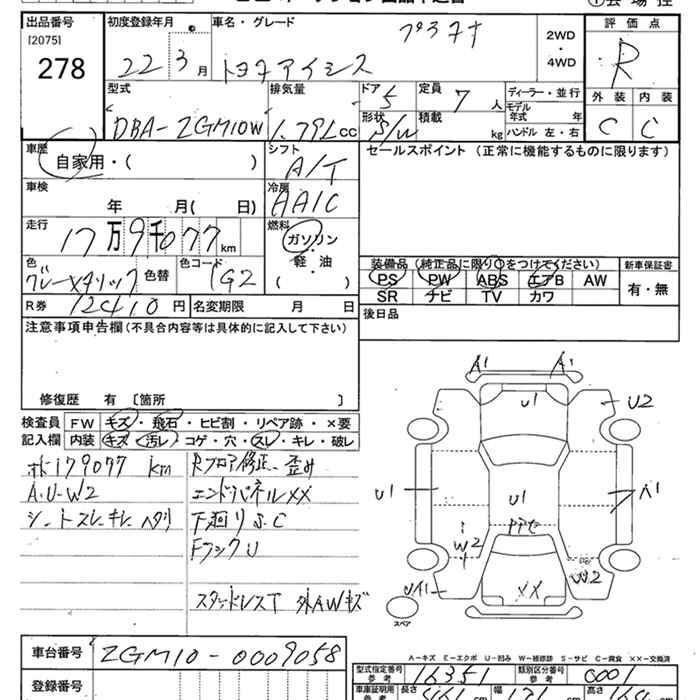 出品番号
[2075]
278
初度登録年月
22 3月
車名・グレード
トヨタアイシス
プラタナ
2WD
・
4WD
評価点
R
外装 内装
C C
型式
DBA-ZGM10W
排気量
1.79L cc
ドア
5
定員
7人
形状
S/W
積載
kg
ディーラー・並行
モデル年式 年
ハンドル 左・右
車歴
自家用・( )
シフト
A/T
車検
年 月( 日)
冷房
AAIC
走行
17万9千077km
燃料
ガソリン
・
軽・油
( )
色
グレーメタリック
色替
色コード
1G2
R券
12410円
名変期限 月 日
セールスポイント (正常に機能するものに限ります)
装備品(純正品に限り○をつけてください)
新車保証書
PS PW ABS エアB AW
SR ナビ TV カワ
有・無
後日品
注意事項申告欄(不具合内容等は具体的に記入して下さい)
修復歴 有〔箇所 〕
検査員記入欄
FW キズ・飛石・ヒビ割・リペア跡・×要
内装 キズ・汚レ・コゲ・穴・スレ・キレ・破レ
ホド179077 km
A.U-W2
シートスレキレヘタリ
Rフロア修正 歪み
エンドパネルXX
下廻りS.C
FフックU
スタッドレスT 外AWキズ
A1 A1
U1
U2
U1
U1
A1
W2
W2
UA1
XX
スペア
A-キズ E-エクボ U-凹み W-補修跡 S-サビ C-腐食 XX-交換済
車台番号
ZGM10-0009058
登録番号
型式指定番号
参考
16351
類別区分番号
参考
0001
車庫証明用
参考
長さ
幅
高さ